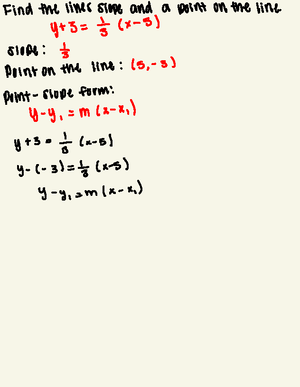 Find the lines slope and a point on the line
y+3 = 1/3 (x-5)
Slope: 1/3
Point on the line: (5,-3)
Point-slope form:
y-y₁=m(x-x₁)
y+3 = 1/3 (x-5)
y-(-3)=1/3 (x-5)
y-y₁=m(x-x₁)